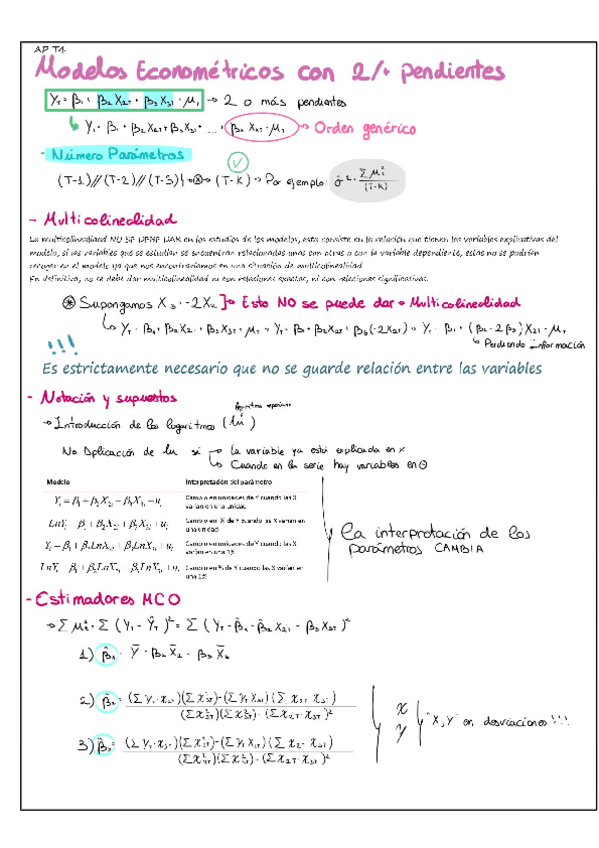 AP T1
Modelos Econométricos con 2/+ pendientes
Yt = β1 + β2 X2t + β3 X3t + μt → 2 o más pendientes
Yt = β1 + β2 X2t + β3 X3t + .... + βk Xkt + μt → Orden genérico
- Número Parámetros
(T-1)//(T-2)//(T-3) (T-K) → Por ejemplo: σ̂² = Σ μ̂t² / (T-K)
- Multicolinealidad
La multicolinealidad NO SE DEBE DAR en los estudios de los modelos, esta consiste en la relación que tienen las variables explicativas del
modelo, si las variables que se estudian se encuentran relacionadas unas con otras o con la variable dependiente, estas no se podrían
recoger en el modelo ya que nos encontraríamos en una situación de multicolinealidad.
En definitiva, no se debe dar multicolinealidad ni con relaciones exactas, ni con relaciones significativas.
Supongamos X3 = -2X2 ] → Esto NO se puede dar → Multicolinealidad
Yt = β1 + β2 X2t + β3 X3t + μt → Yt = β1 + β2 X2t + β3 (-2X2t) → Yt = β1 + (β2 - 2β3) X2t + μt
→ Perdiendo información
!!!
Es estrictamente necesario que no se guarde relación entre las variables
- Notación y supuestos
→ Introducción de los logaritmos (ln)
No Aplicación de ln si → la variable ya está explicada en %
→ Cuando en la serie hay variables en ⊖
Modelo Interpretación del parámetro
Yt = β1 + β2X2t + β3X3t + ut Cambio en unidades de Y cuando las X
varían en una unidad
LnYt = β1 + β2X2t + β3X3t + ut Cambio en % de Y cuando las X varían en
una unidad
Yt = β1 + β2LnX2t + β3LnX3t + ut Cambio en unidades de Y cuando las X
varían en una 1%
LnYt = β1 + β2LnX2t + β3LnX3t + ut Cambio en % de Y cuando las X varían en
una 1%
La interpretación de los
parámetros CAMBIA
- Estimadores MCO
→ Σ μ̂t² = Σ (Yt - Ŷt)² = Σ (Yt - β̂1 - β̂2 X2t - β̂3 X3t)²
1) β̂1 = Ȳ - β̂2 X̄2 - β̂3 X̄3
2) β̂2 = (Σ yt · x2t)(Σ x3t²) - (Σ yt x3t)(Σ x2t · x3t) / (Σ x2t²)(Σ x3t²) - (Σ x2t · x3t)²
3) β̂3 = (Σ yt · x3t)(Σ x2t²) - (Σ yt x2t)(Σ x2t · x3t) / (Σ x2t²)(Σ x3t²) - (Σ x2t · x3t)²
x
y
"x, y" en desviaciones!!!